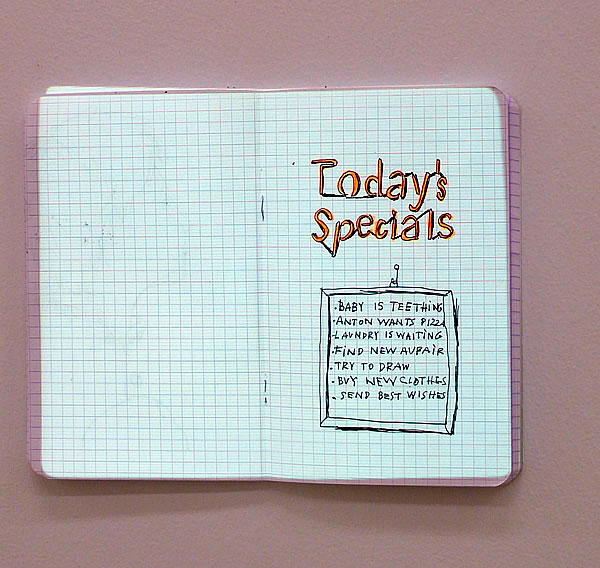 Today's
Specials
- BABY IS TEETHING
- ANTON WANTS PIZZA
- LAUNDRY IS WAITING
- FIND NEW AUPAIR
- TRY TO DRAW
- BUY NEW CLOTHES
- SEND BEST WISHES